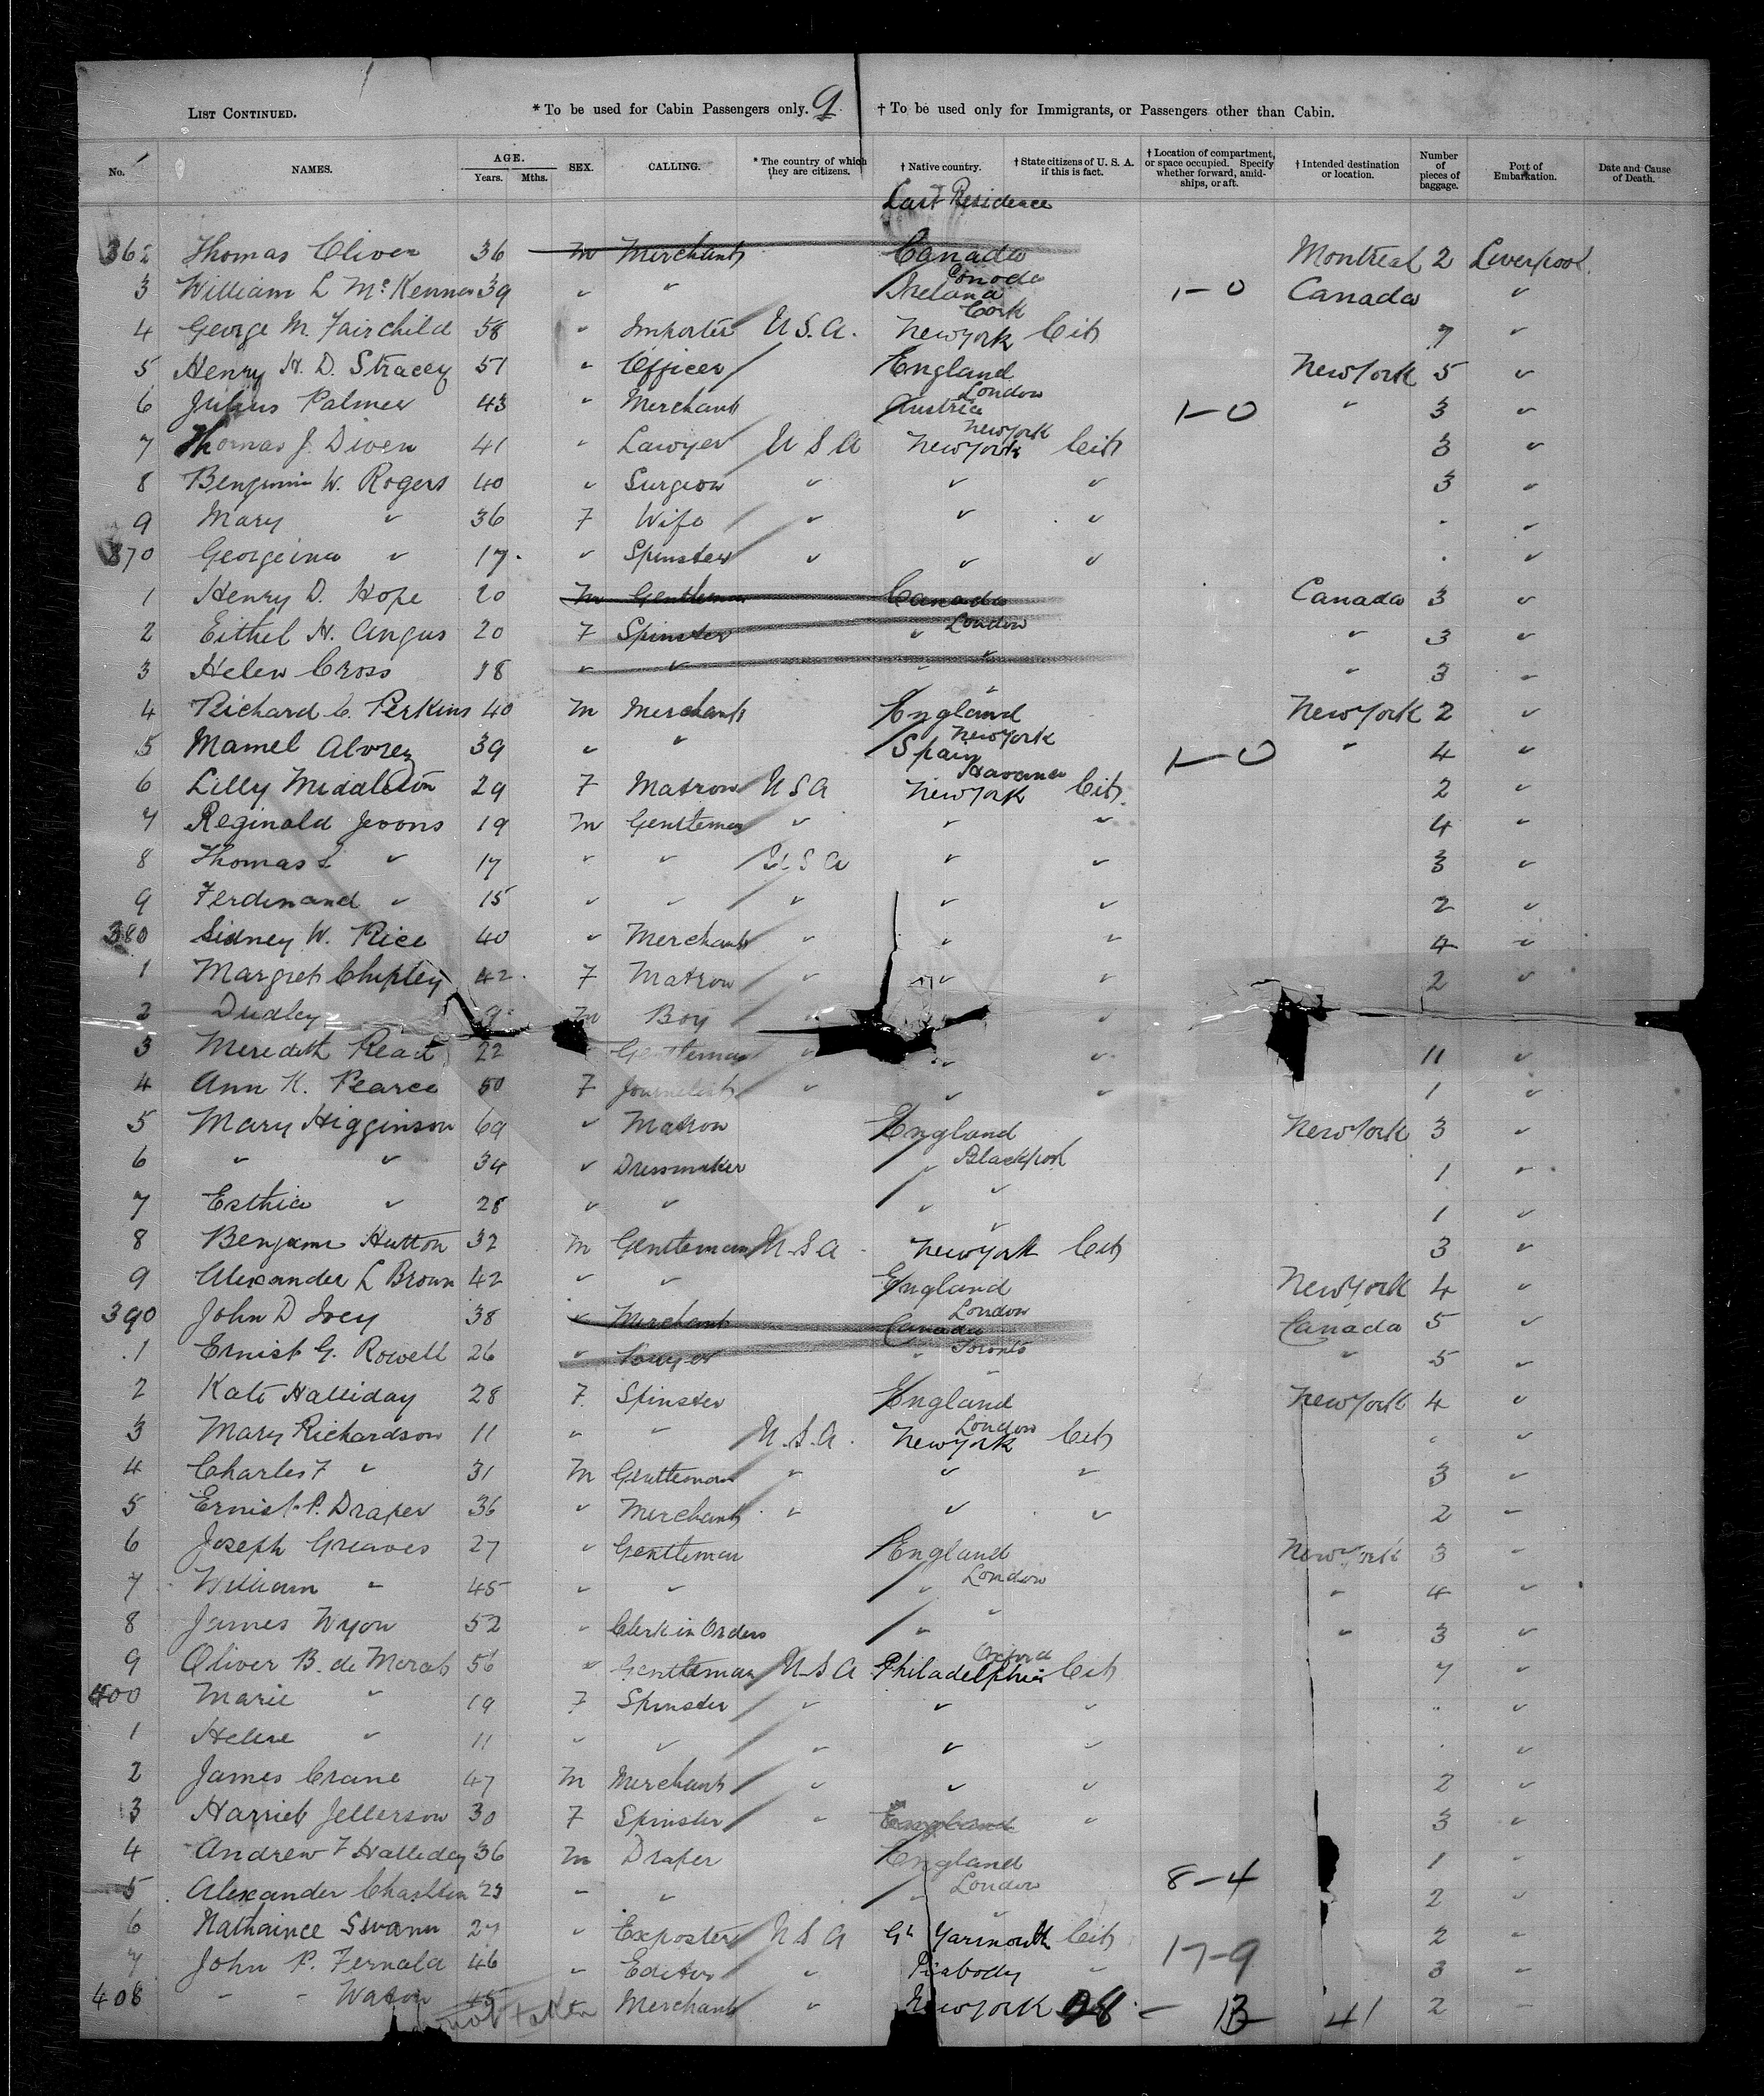 LIST CONTINUED. * To be used for Cabin Passengers only. 9 † To be used only for Immigrants, or Passengers other than Cabin.
No. NAMES. AGE. Years. Mths. SEX. CALLING. * The country of which they are citizens. † Native country. † State citizens of U. S. A. if this is fact. † Location of compartment, or space occupied. Specify whether forward, amidships, or aft. † Intended destination or location. Number of pieces of baggage. Port of Embarkation. Date and Cause of Death.
Last Residence
362 Thomas Oliver 36 M Merchant Canada Montreal 2 Liverpool.
Canada
3 William L McKenna 39 " " Ireland 1-0 Canada "
Cork
4 George M. Fairchild 58 " Importer U.S.A. New York Cit 7 "
5 Henry H. D. Stracey 51 " Officer England New York 5 "
London
6 Julius Palmer 43 " Merchant Austria 1-0 " 3 "
New York
7 Thomas J. Diven 41 " Lawyer U S A New York Cit 3 "
8 Benjamin W. Rogers 40 " Surgeon " " " 3 "
9 Mary " 36 F Wife " " " "
370 Georgeina " 17 " Spinster " " " "
1 Henry D. Hope 20 M Gentleman Canada Canada 3 "
London
2 Eithel H. Angus 20 F Spinster " " 3 "
"
3 Helen Cross 18 " " " " 3 "
"
4 Richard C. Perkins 40 M Merchant England New York 2 "
New York
5 Mamel Alvrez 39 " " Spain 1-0 " 4 "
Havana
6 Lilly Middleton 29 F Matron U S A New York Cit. 2 "
7 Reginald Jevons 19 M Gentleman " " " 4 "
8 Thomas L " 17 " " U S A " " 3 "
9 Ferdinand " 15 " " " " " 2 "
380 Sidney W. Rice 40 " Merchant " " " 4 "
1 Margret Chipley 42 F Matron " " " 2 "
2 Dudley 9 M Boy " "
3 Meredith Read 22 " Gentleman " " " 11 "
4 Ann K. Pearce 50 F Journalist " " " 1 "
5 Mary Higginson 69 " Matron England New York 3 "
Blackpool
6 " " 34 " Dressmaker " 1 "
"
7 Esthia " 28 " " " 1 "
"
8 Benjamin Hutton 32 M Gentleman U.S.A. New York Cit 3 "
9 Alexander L Brown 42 " " England New York 4 "
London
390 John D Ivey 38 " Merchant Canada Canada 5 "
Toronto
1 Ernist G. Rowell 26 " Lawyer " " 5 "
"
2 Kate Halliday 28 F. Spinster England New York 4 "
London
3 Mary Richardson 11 " " U.S.A. New York Cit "
4 Charles F " 31 M Gentleman " " " 3 "
5 Ernist P. Draper 36 " Merchant " " " 2 "
6 Joseph Greaves 27 " Gentleman England New York 3 "
London
7 William " 45 " " " " 4 "
"
8 James Wyon 52 " Clerk in Orders " " 3 "
Oxford
9 Oliver B. de Morat 56 " Gentleman U S A Philadelphia Cit 7 "
400 Marie " 19 F Spinster " " " "
1 Helene " 11 " " " " " "
2 James Crane 47 M Merchant " " " 2 "
3 Harriet Jellerson 30 F Spinster " England " 3 "
4 Andrew F Halliday 36 M Draper England 8-4 1 "
London
5 Alexander Charlton 23 " " " 2 "
"
6 Nathaince Swann 27 " Exporter U S A Gt Yarmouth Cit 2 "
7 John P. Fernald 46 " Editor " Peabody " 17-9 3 "
408 " " Watson 45 Merchant " New York 13 41 2 "
not taken